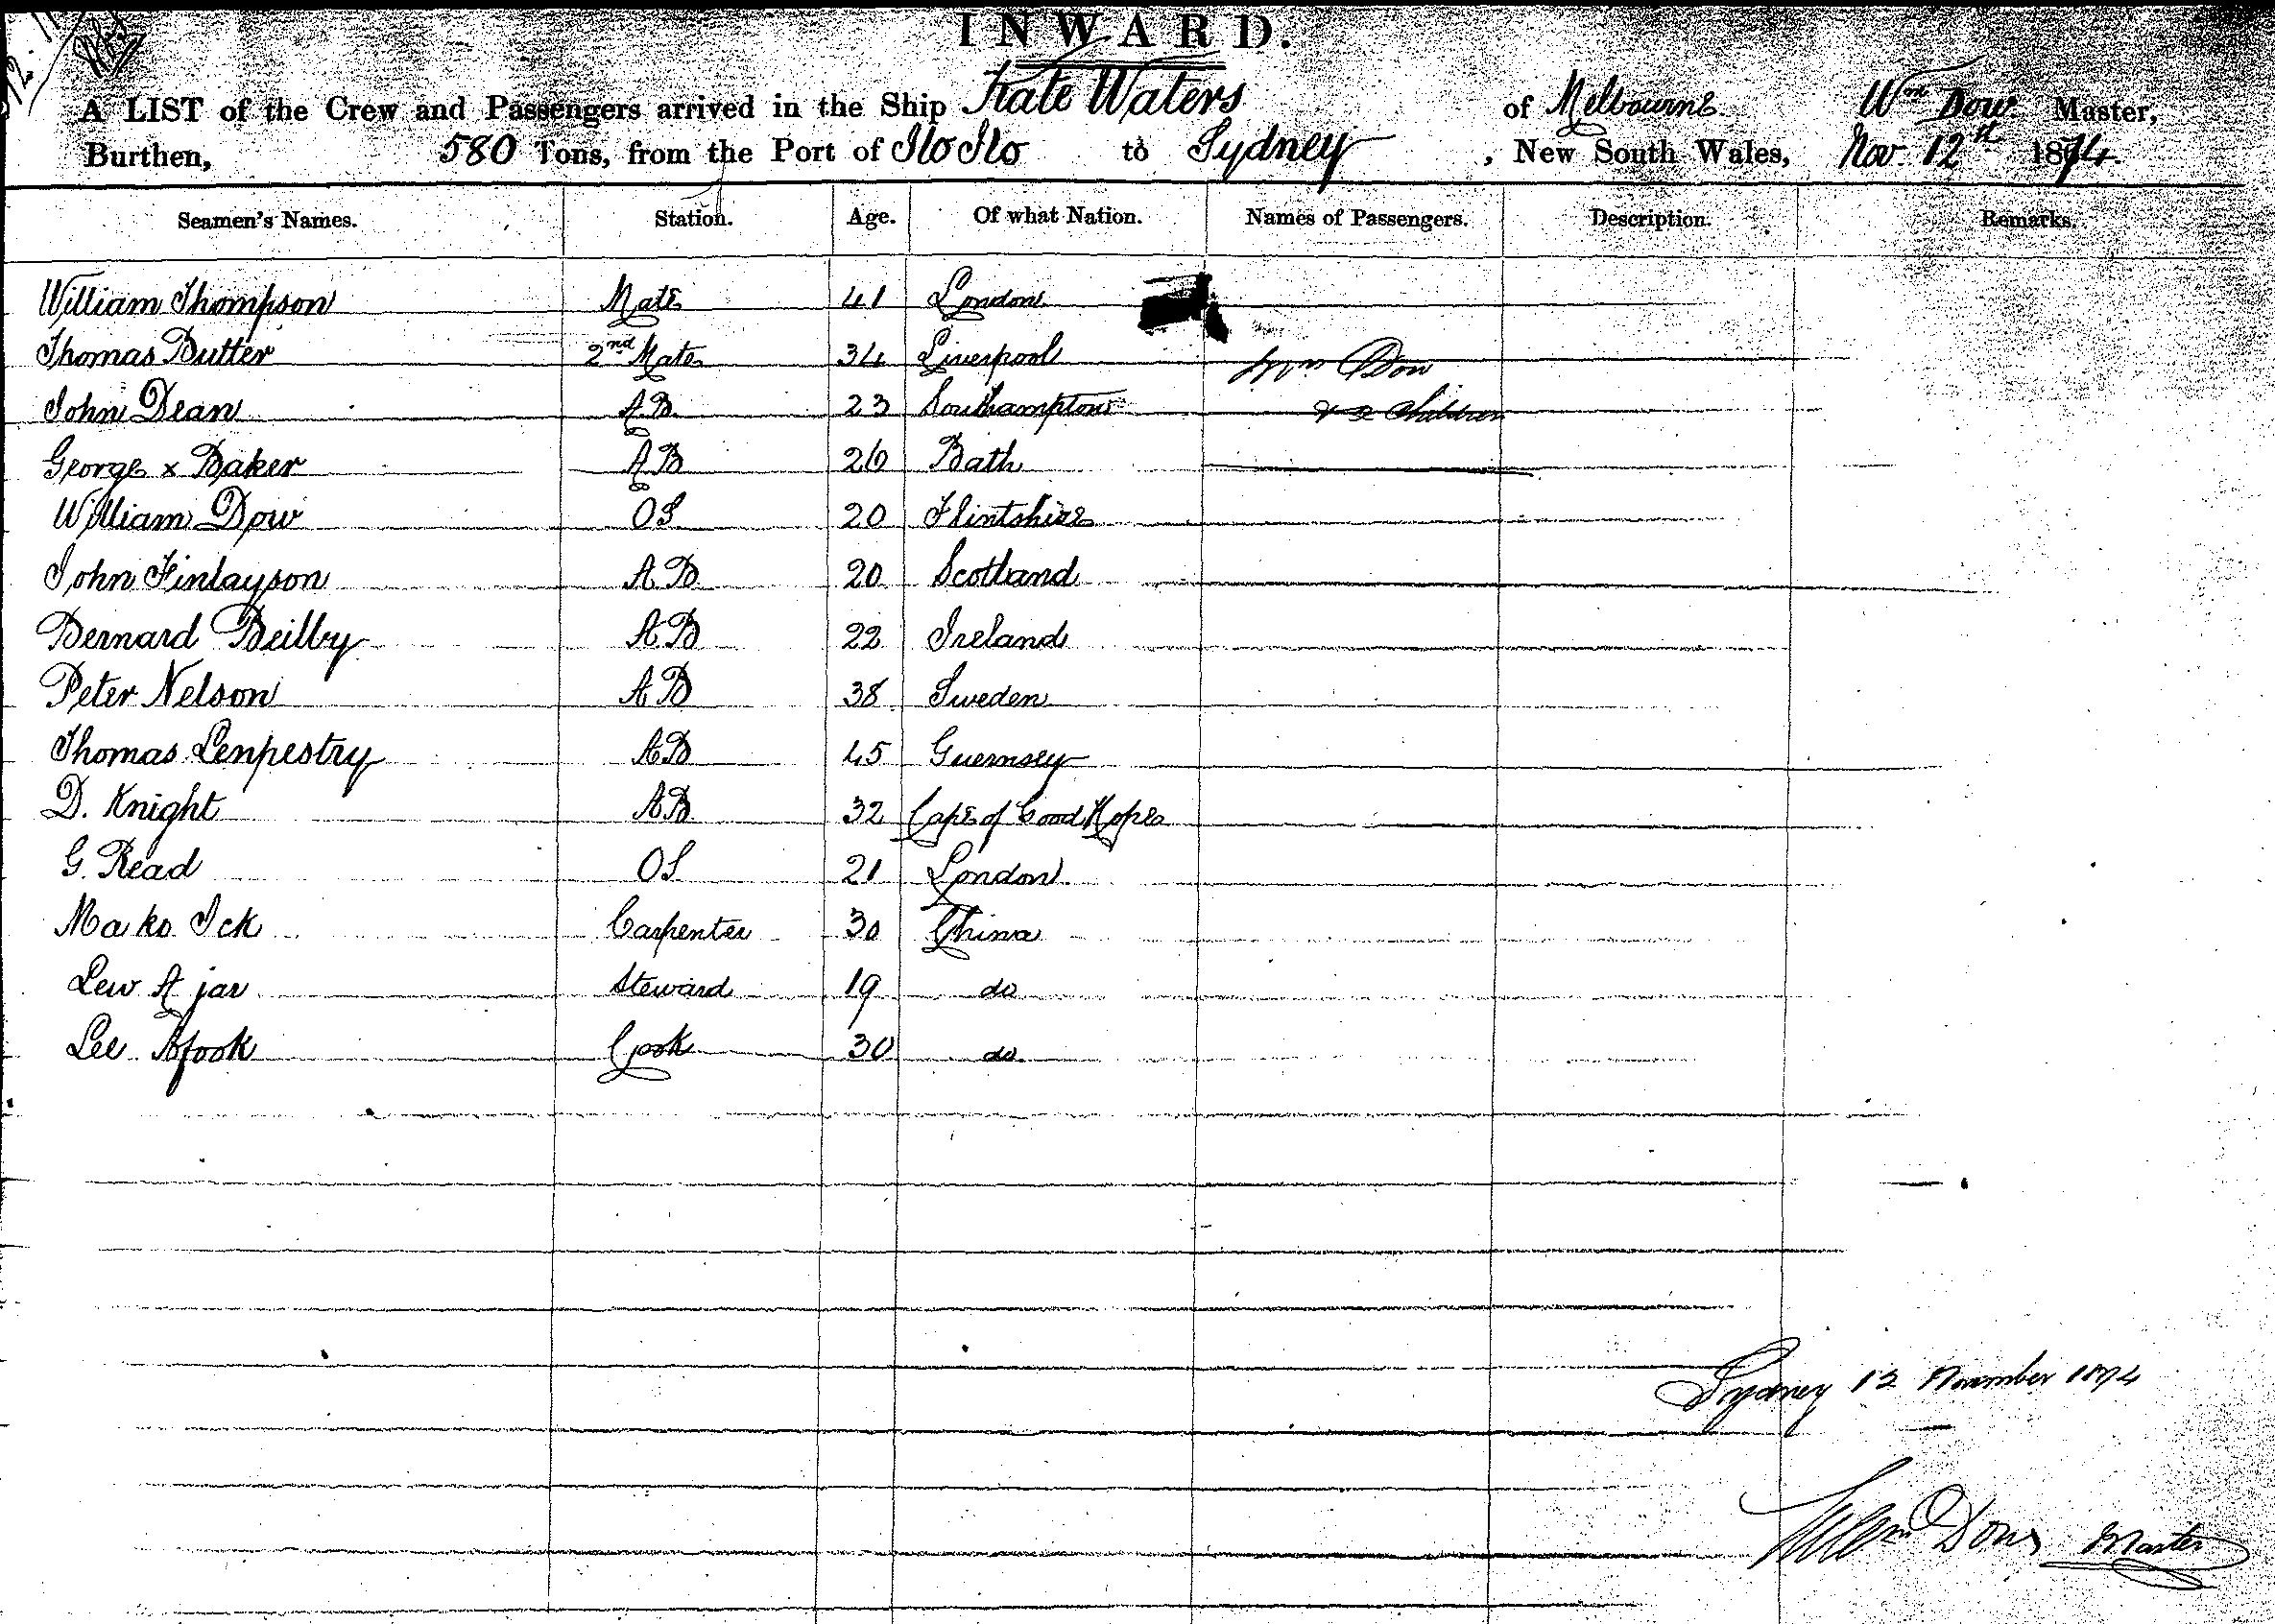 INWARD.
A LIST of the Crew and Passengers arrived in the Ship Kate Waters of Melbourne Wm Dow Master,
Burthen, 580 Tons, from the Port of Ilo Ilo to Sydney, New South Wales, Nov. 12th 1874.
Seamen's Names. Station. Age. Of what Nation. Names of Passengers. Description. Remarks.
William Thompson Mate 41 London
Thomas Butter 2nd Mate 34 Liverpool Dow
John Dean AB 23 Southampton Children
George x Baker AB 26 Bath
William Dow OS 20 Flintshire
John Finlayson AB 20 Scotland
Bernard Beilby AB 22 Ireland
Peter Nelson AB 38 Sweden
Thomas Lenpestry AB 45 Guernsey
D. Knight AB 32 Cape of Good Hope
G. Read OS 21 London
Ma ko Ick Carpenter 30 China
Lew A jar Steward 19 do
Lee Afook Cook 30 do
Sydney 12 November 1874
Dow Master